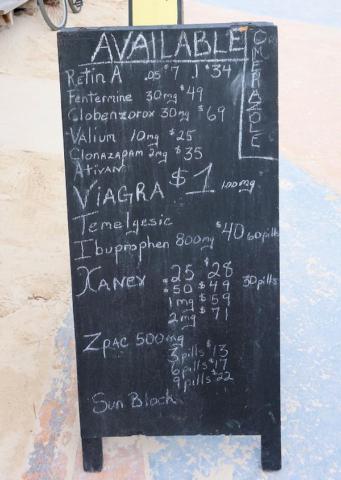 AVAILABLE
OMERAZOLE
Retin A .05 $7 .1 $34
Fentermine 30mg $49
Clobenzorox 30mg $69
Valium 10mg $25
Clonazapam 2mg $35
Ativan
VIAGRA $1 100mg
Temelgesic
Ibuprophen 800mg $40 60pills
XANEX .25 $28 30pills
.50 $49
1mg $59
2mg $71
Zpac 500mg
3pills $13
6pills $17
9pills $22
Sun Block